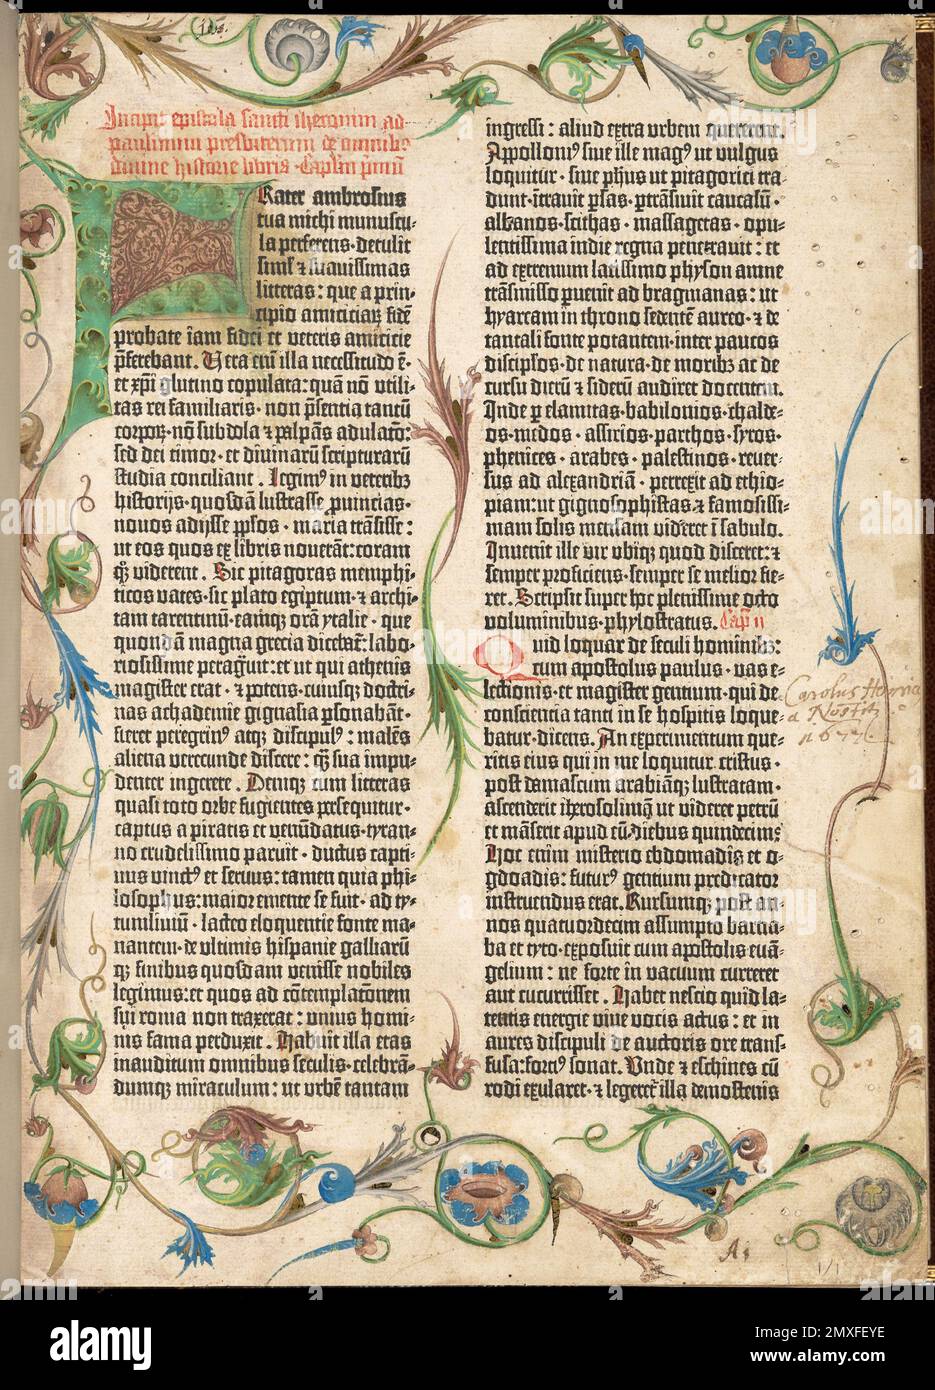 Incipit epistola sancti iheronimi ad
paulinum presbiterum de omnibus
divine historie libris · Capitulum primum
Frater ambrosius
tua michi munuscu-
la perferens · detulit
siml' et suavissimas
litteras : que a prin-
cipio amiciciarum fidem
probate iam fidei et veteris amicicie
preferebant. Vera enim illa necessitudo est
et xpi glutino copulata : quam non utili-
tas rei familiaris · non presentia tantum
corporum · non subdola et palpans adulatio :
sed dei timor · et divinarum scripturarum
studia conciliant . Legimus in veteribus
historiis · quosdam lustrasse provincias ·
novos adijsse populos · maria transisse :
ut eos quos ex libris noverant : coram
quoque viderent . Sic pitagoras memphi-
ticos vates · sic plato egiptum · et archi-
tam tarentinum · eamque oram ytalie · que
quondam magna grecia dicebatur : labo-
riosissime peragravit : et ut qui athenis
magister erat · et potens · cuiusque doctri-
nas achademie gignasia personabant ·
fieret peregrinus atque discipulus : malens
aliena verecunde discere : quam sua impu-
denter ingerere . Denique cum litteras
quasi toto orbe fugientes persequitur ·
captus a piratis et venundatus · tyran-
no crudelissimo paruit · ductus capti-
vus vinctus et servus : tamen quia phi-
losophus : maior emente se fuit · ad ty-
tum livium · lacteo eloquentie fonte ma-
nantem · de ultimis hispanie galliarum
que finibus quosdam venisse nobiles
legimus : et quos ad contemplationem
sui roma non traxerat : unius homi-
nis fama perduxit . Habuit illa etas
inauditum omnibus seculis · celebran-
dumque miraculum : ut urbem tantam
ingressi : aliud extra urbem quererent.
Appollonius sive ille magus ut vulgus
loquitur · sive phus ut pitagorici tra-
dunt · intravit persas · pertransivit caucasum ·
albanos · scithas · massagetas · opu-
lentissima indie regna penetravit : et
ad extremum latissimo physon amne
transmisso pervenit ad bragmanas : ut
hyarcam in throno sedentem aureo · et de
tantali fonte potantem · inter paucos
discipulos · de natura · de moribus ac de
cursu dierum et siderum audiret docentem.
Inde per elamitas · babilonios · chalde-
os · medos · assirios · parthos · syros ·
phenices · arabes · palestinos · rever-
sus ad alexandriam · perrexit ad ethio-
piam : ut gignosophistas et famosissi-
mam solis mensam videret in sabulo.
Invenit ille vir ubique quod disceret : et
semper proficiens · semper se melior fie-
ret. Scripsit super hoc plenissime octo
voluminibus · phylostratus. Cap II
Quid loquar de seculi hominibus :
cum apostolus paulus · vas e-
lectionis · et magister gentium · qui de
conscientia tanti in se hospitis loque-
batur · dicens. An experimentum que-
ritis eius qui in me loquitur cristus ·
post damascum arabiamque lustratam ·
ascenderit iherosolimam ut videret petrum
et manserit apud eum diebus quindecim
Hoc enim misterio ebdomadis et o-
gdoadis : futurus gentium predicator
instruendus erat. Rursumque post an-
nos quatuordecim assumpto barna-
ba et tyto · exposuit cum apostolis evan-
gelium : ne forte in vacuum curreret
aut cucurrisset . Habet nescio quid la-
tentis energie vive vocis actus : et in
aures discipuli de auctoris ore trans-
fusa : fortius sonat. Unde et eschines cum
rodi exularet · et legeretur illa demostenis
Carolus
a Nostitz
1677
A1
1/1
alamy
Image ID: 2MXFEYE
www.alamy.com